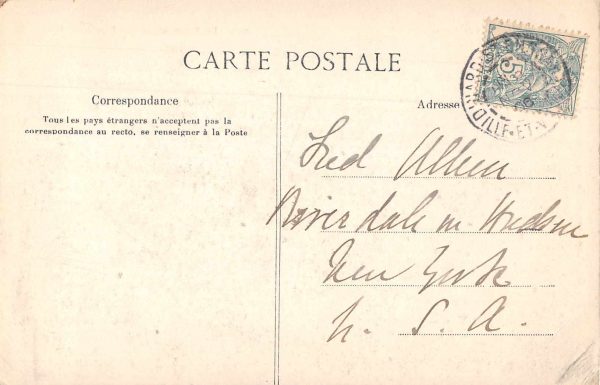 CARTE POSTALE
Correspondance
Tous les pays étrangers n'acceptent pas la
correspondance au recto, se renseigner à la Poste
Adresse
Fred Allen
Riverdale on Hudson
New York
U. S. A.
DINARD
ILLE-ET-V